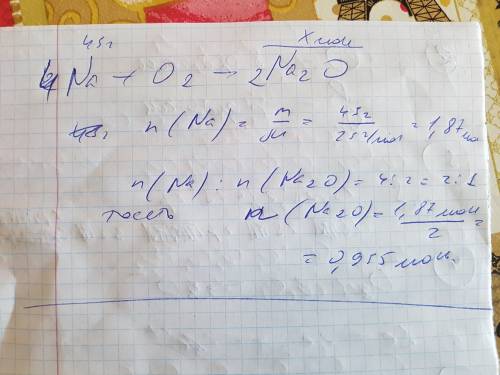 43г X моль
4Na + O2 → 2Na2O
n(Na) = m/M = 43г/23г/моль = 1,87 моль
n(Na) : n(Na2O) = 4:2 = 2:1
тоесть n(Na2O) = 1,87 моль/2 =
= 0,955 моль.